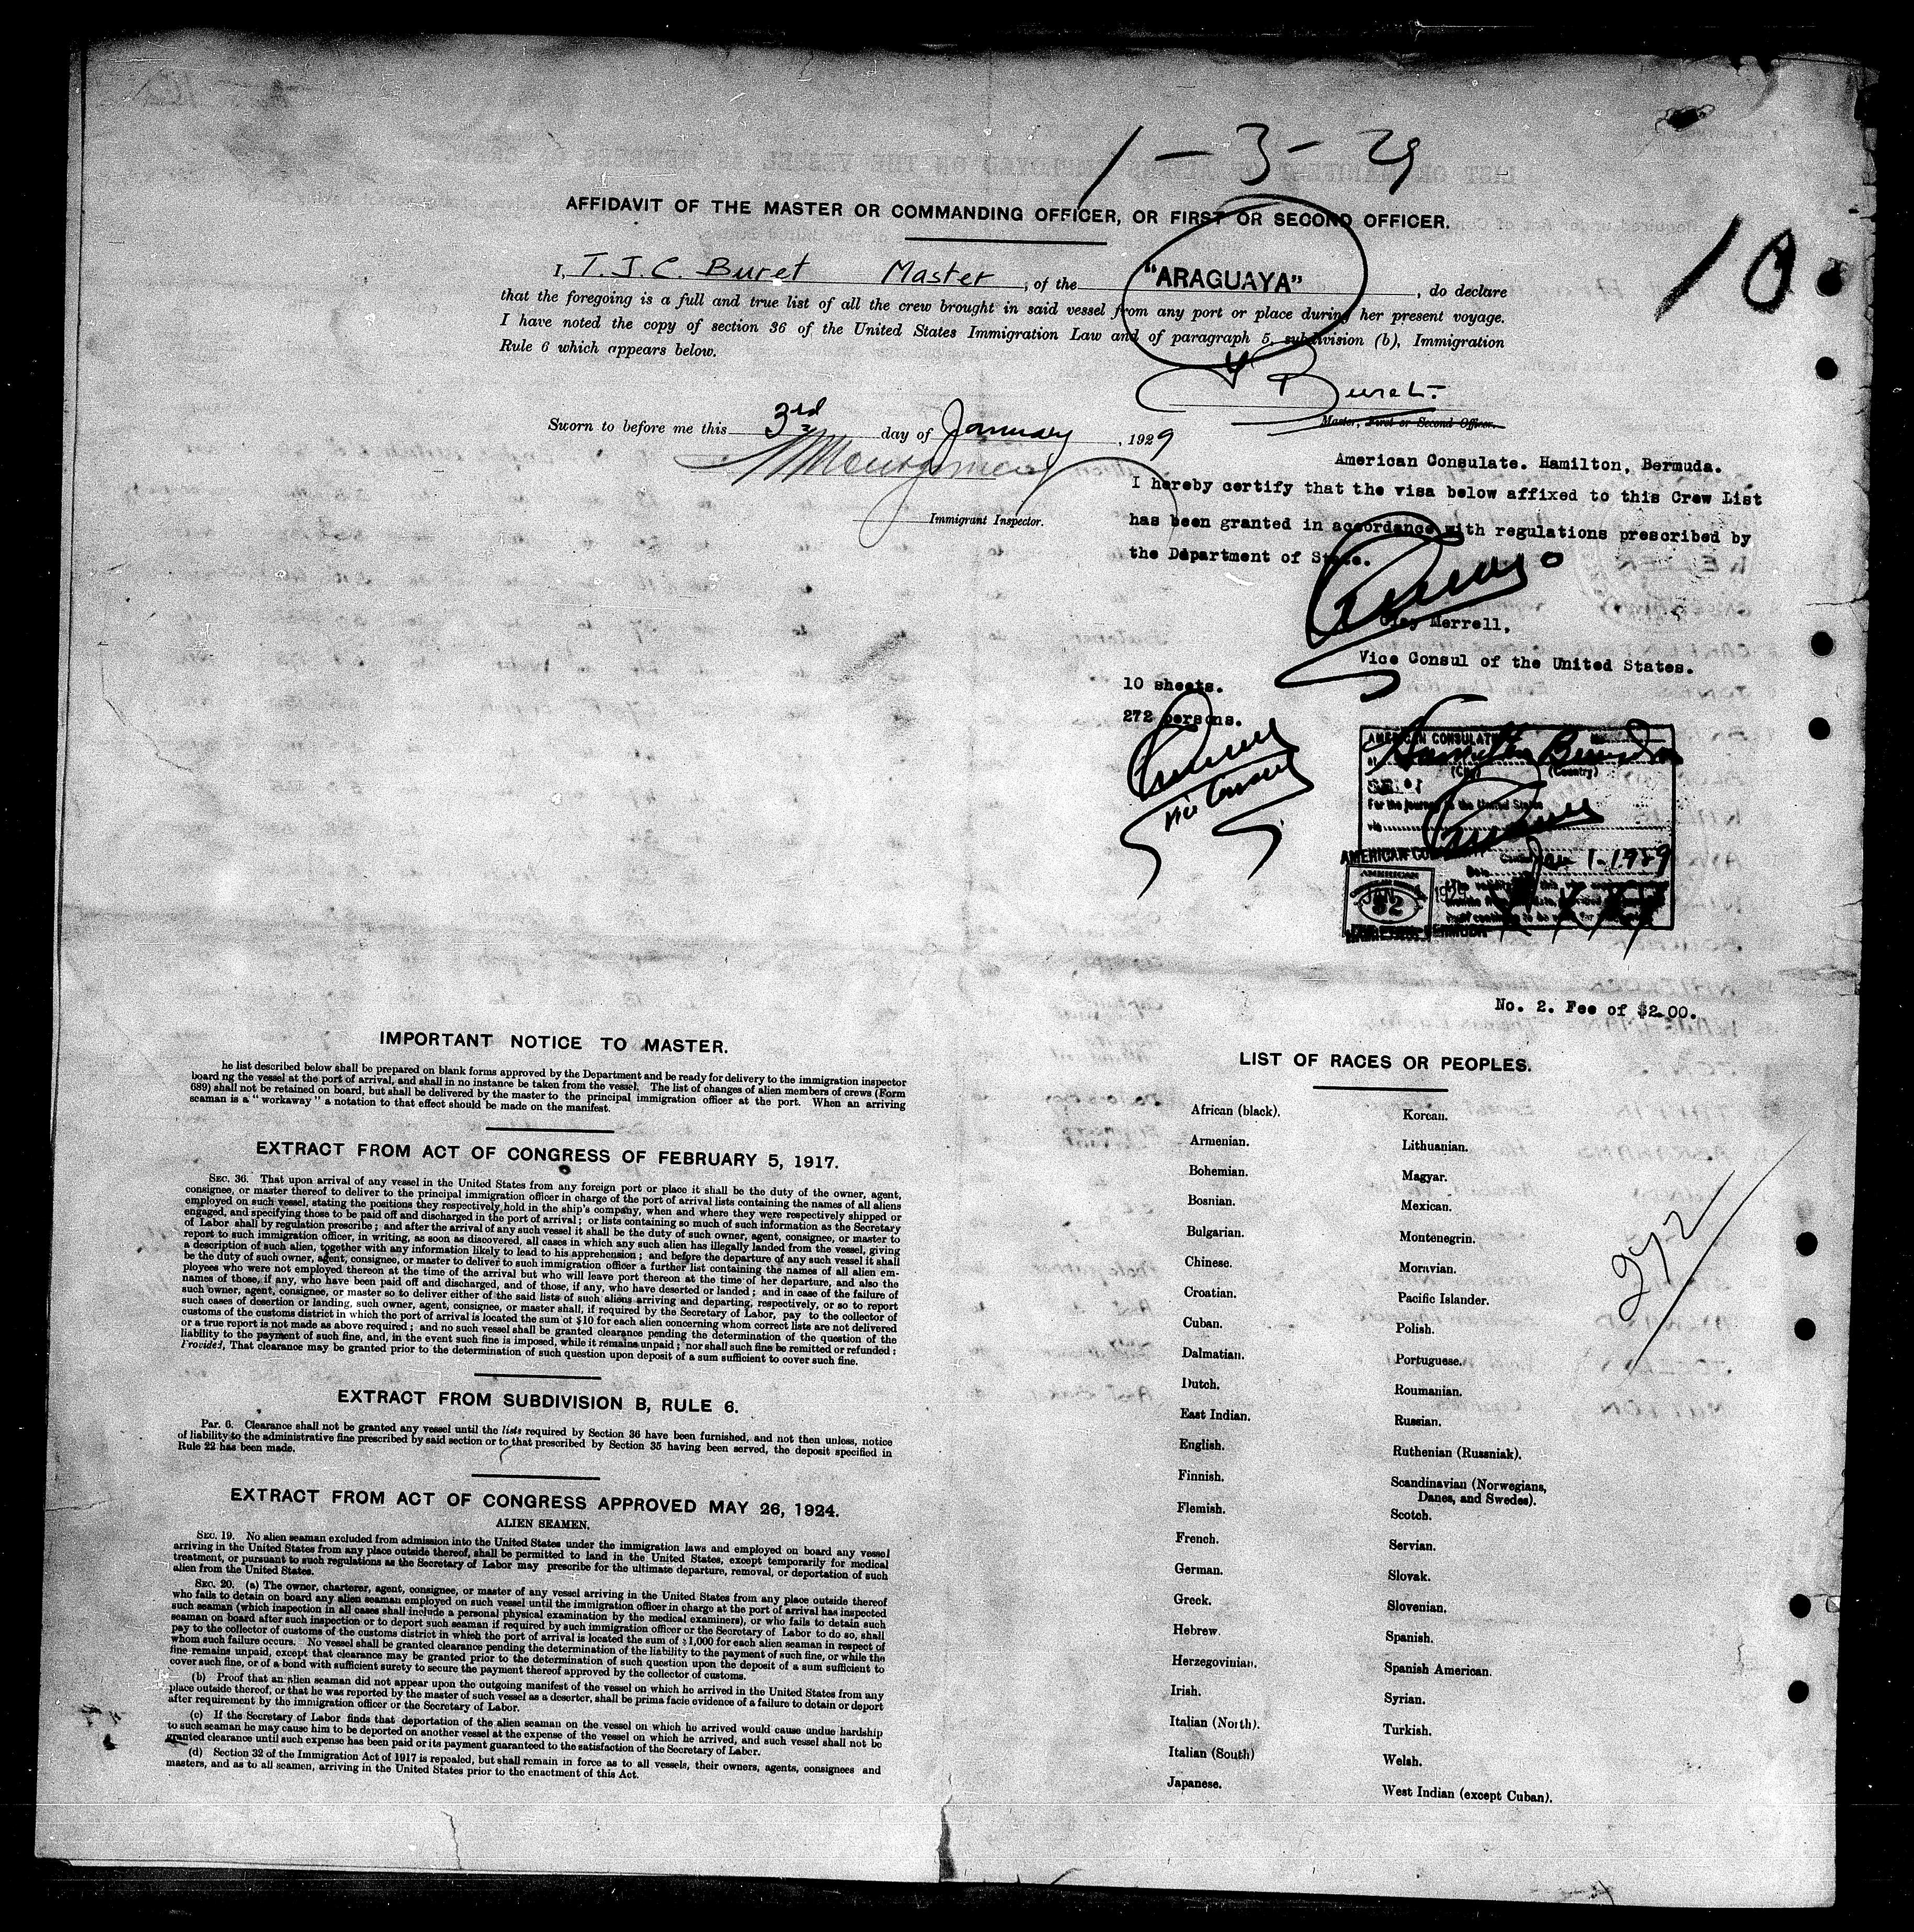 1 - 3 - 29
10
AFFIDAVIT OF THE MASTER OR COMMANDING OFFICER, OR FIRST OR SECOND OFFICER.
I, T. J. C. Buret Master, of the "ARAGUAYA", do declare
that the foregoing is a full and true list of all the crew brought in said vessel from any port or place during her present voyage.
I have noted the copy of section 36 of the United States Immigration Law and of paragraph 5, subdivision (b), Immigration
Rule 6 which appears below.
Buret.
Master, First or Second Officer.
Sworn to before me this 3rd day of January, 1929
Montgomery
Immigrant Inspector.
American Consulate. Hamilton, Bermuda.
I hereby certify that the visa below affixed to this Crew List
has been granted in accordance with regulations prescribed by
the Department of State.
Merrell,
Vice Consul of the United States.
10 sheets.
272 persons.
Vice Consul
AMERICAN CONSULATE
Hamilton Bermuda
(City) (Country)
For the journey to the United States
Jan 1-1929
AMERICAN
JAN 1929
$2
BERMUDA
No. 2. Fee of $2.00.
IMPORTANT NOTICE TO MASTER.
he list described below shall be prepared on blank forms approved by the Department and be ready for delivery to the immigration inspector
board ng the vessel at the port of arrival, and shall in no instance be taken from the vessel. The list of changes of alien members of crews (Form
689) shall not be retained on board, but shall be delivered by the master to the principal immigration officer at the port. When an arriving
seaman is a "workaway" a notation to that effect should be made on the manifest.
EXTRACT FROM ACT OF CONGRESS OF FEBRUARY 5, 1917.
SEC. 36. That upon arrival of any vessel in the United States from any foreign port or place it shall be the duty of the owner, agent,
consignee, or master thereof to deliver to the principal immigration officer in charge of the port of arrival lists containing the names of all aliens
employed on such vessel, stating the positions they respectively hold in the ship's company, when and where they were respectively shipped or
engaged, and specifying those to be paid off and discharged in the port of arrival; or lists containing so much of such information as the Secretary
of Labor shall by regulation prescribe; and after the arrival of any such vessel it shall be the duty of such owner, agent, consignee, or master to
report to such immigration officer, in writing, as soon as discovered, all cases in which any such alien has illegally landed from the vessel, giving
a description of such alien, together with any information likely to lead to his apprehension; and before the departure of any such vessel it shall
be the duty of such owner, agent, consignee, or master to deliver to such immigration officer a further list containing the names of all alien em-
ployees who were not employed thereon at the time of the arrival but who will leave port thereon at the time of her departure, and also the
names of those, if any, who have been paid off and discharged, and of those, if any, who have deserted or landed; and in case of the failure of
such owner, agent, consignee, or master so to deliver either of the said lists of such aliens arriving and departing, respectively, or so to report
such cases of desertion or landing, such owner, agent, consignee, or master shall, if required by the Secretary of Labor, pay to the collector of
customs of the customs district in which the port of arrival is located the sum of $10 for each alien concerning whom correct lists are not delivered
or a true report is not made as above required; and no such vessel shall be granted clearance pending the determination of the question of the
liability to the payment of such fine, and, in the event such fine is imposed, while it remains unpaid; nor shall such fine be remitted or refunded:
Provided, That clearance may be granted prior to the determination of such question upon deposit of a sum sufficient to cover such fine.
EXTRACT FROM SUBDIVISION B, RULE 6.
Par. 6. Clearance shall not be granted any vessel until the lists required by Section 36 have been furnished, and not then unless, notice
of liability to the administrative fine prescribed by said section or to that prescribed by Section 35 having been served, the deposit specified in
Rule 22 has been made.
EXTRACT FROM ACT OF CONGRESS APPROVED MAY 26, 1924.
ALIEN SEAMEN.
SEC. 19. No alien seaman excluded from admission into the United States under the immigration laws and employed on board any vessel
arriving in the United States from any place outside thereof, shall be permitted to land in the United States, except temporarily for medical
treatment, or pursuant to such regulations as the Secretary of Labor may prescribe for the ultimate departure, removal, or deportation of such
alien from the United States.
SEC. 20. (a) The owner, charterer, agent, consignee, or master of any vessel arriving in the United States from any place outside thereof
who fails to detain on board any alien seaman employed on such vessel until the immigration officer in charge at the port of arrival has inspected
such seaman (which inspection in all cases shall include a personal physical examination by the medical examiners), or who fails to detain such
seaman on board after such inspection or to deport such seaman if required by such immigration officer or the Secretary of Labor to do so, shall
pay to the collector of customs of the customs district in which the port of arrival is located the sum of $1,000 for each alien seaman in respect of
whom such failure occurs. No vessel shall be granted clearance pending the determination of the liability to the payment of such fine, or while the
fine remains unpaid, except that clearance may be granted prior to the determination of such question upon the deposit of a sum sufficient to
cover such fine, or of a bond with sufficient surety to secure the payment thereof approved by the collector of customs.
(b) Proof that an alien seaman did not appear upon the outgoing manifest of the vessel on which he arrived in the United States from any
place outside thereof, or that he was reported by the master of such vessel as a deserter, shall be prima facie evidence of a failure to detain or deport
after requirement by the immigration officer or the Secretary of Labor.
(c) If the Secretary of Labor finds that deportation of the alien seaman on the vessel on which he arrived would cause undue hardship
to such seaman he may cause him to be deported on another vessel at the expense of the vessel on which he arrived, and such vessel shall not be
granted clearance until such expense has been paid or its payment guaranteed to the satisfaction of the Secretary of Labor.
(d) Section 32 of the Immigration Act of 1917 is repealed, but shall remain in force as to all vessels, their owners, agents, consignees and
masters, and as to all seamen, arriving in the United States prior to the enactment of this Act.
LIST OF RACES OR PEOPLES.
African (black).
Armenian.
Bohemian.
Bosnian.
Bulgarian.
Chinese.
Croatian.
Cuban.
Dalmatian.
Dutch.
East Indian.
English.
Finnish.
Flemish.
French.
German.
Greek.
Hebrew.
Herzegovinian.
Irish.
Italian (North).
Italian (South)
Japanese.
Korean.
Lithuanian.
Magyar.
Mexican.
Montenegrin.
Moravian.
Pacific Islander.
Polish.
Portuguese.
Roumanian.
Russian.
Ruthenian (Russniak).
Scandinavian (Norwegians,
Danes, and Swedes).
Scotch.
Servian.
Slovak.
Slovenian.
Spanish.
Spanish American.
Syrian.
Turkish.
Welsh.
West Indian (except Cuban).
272